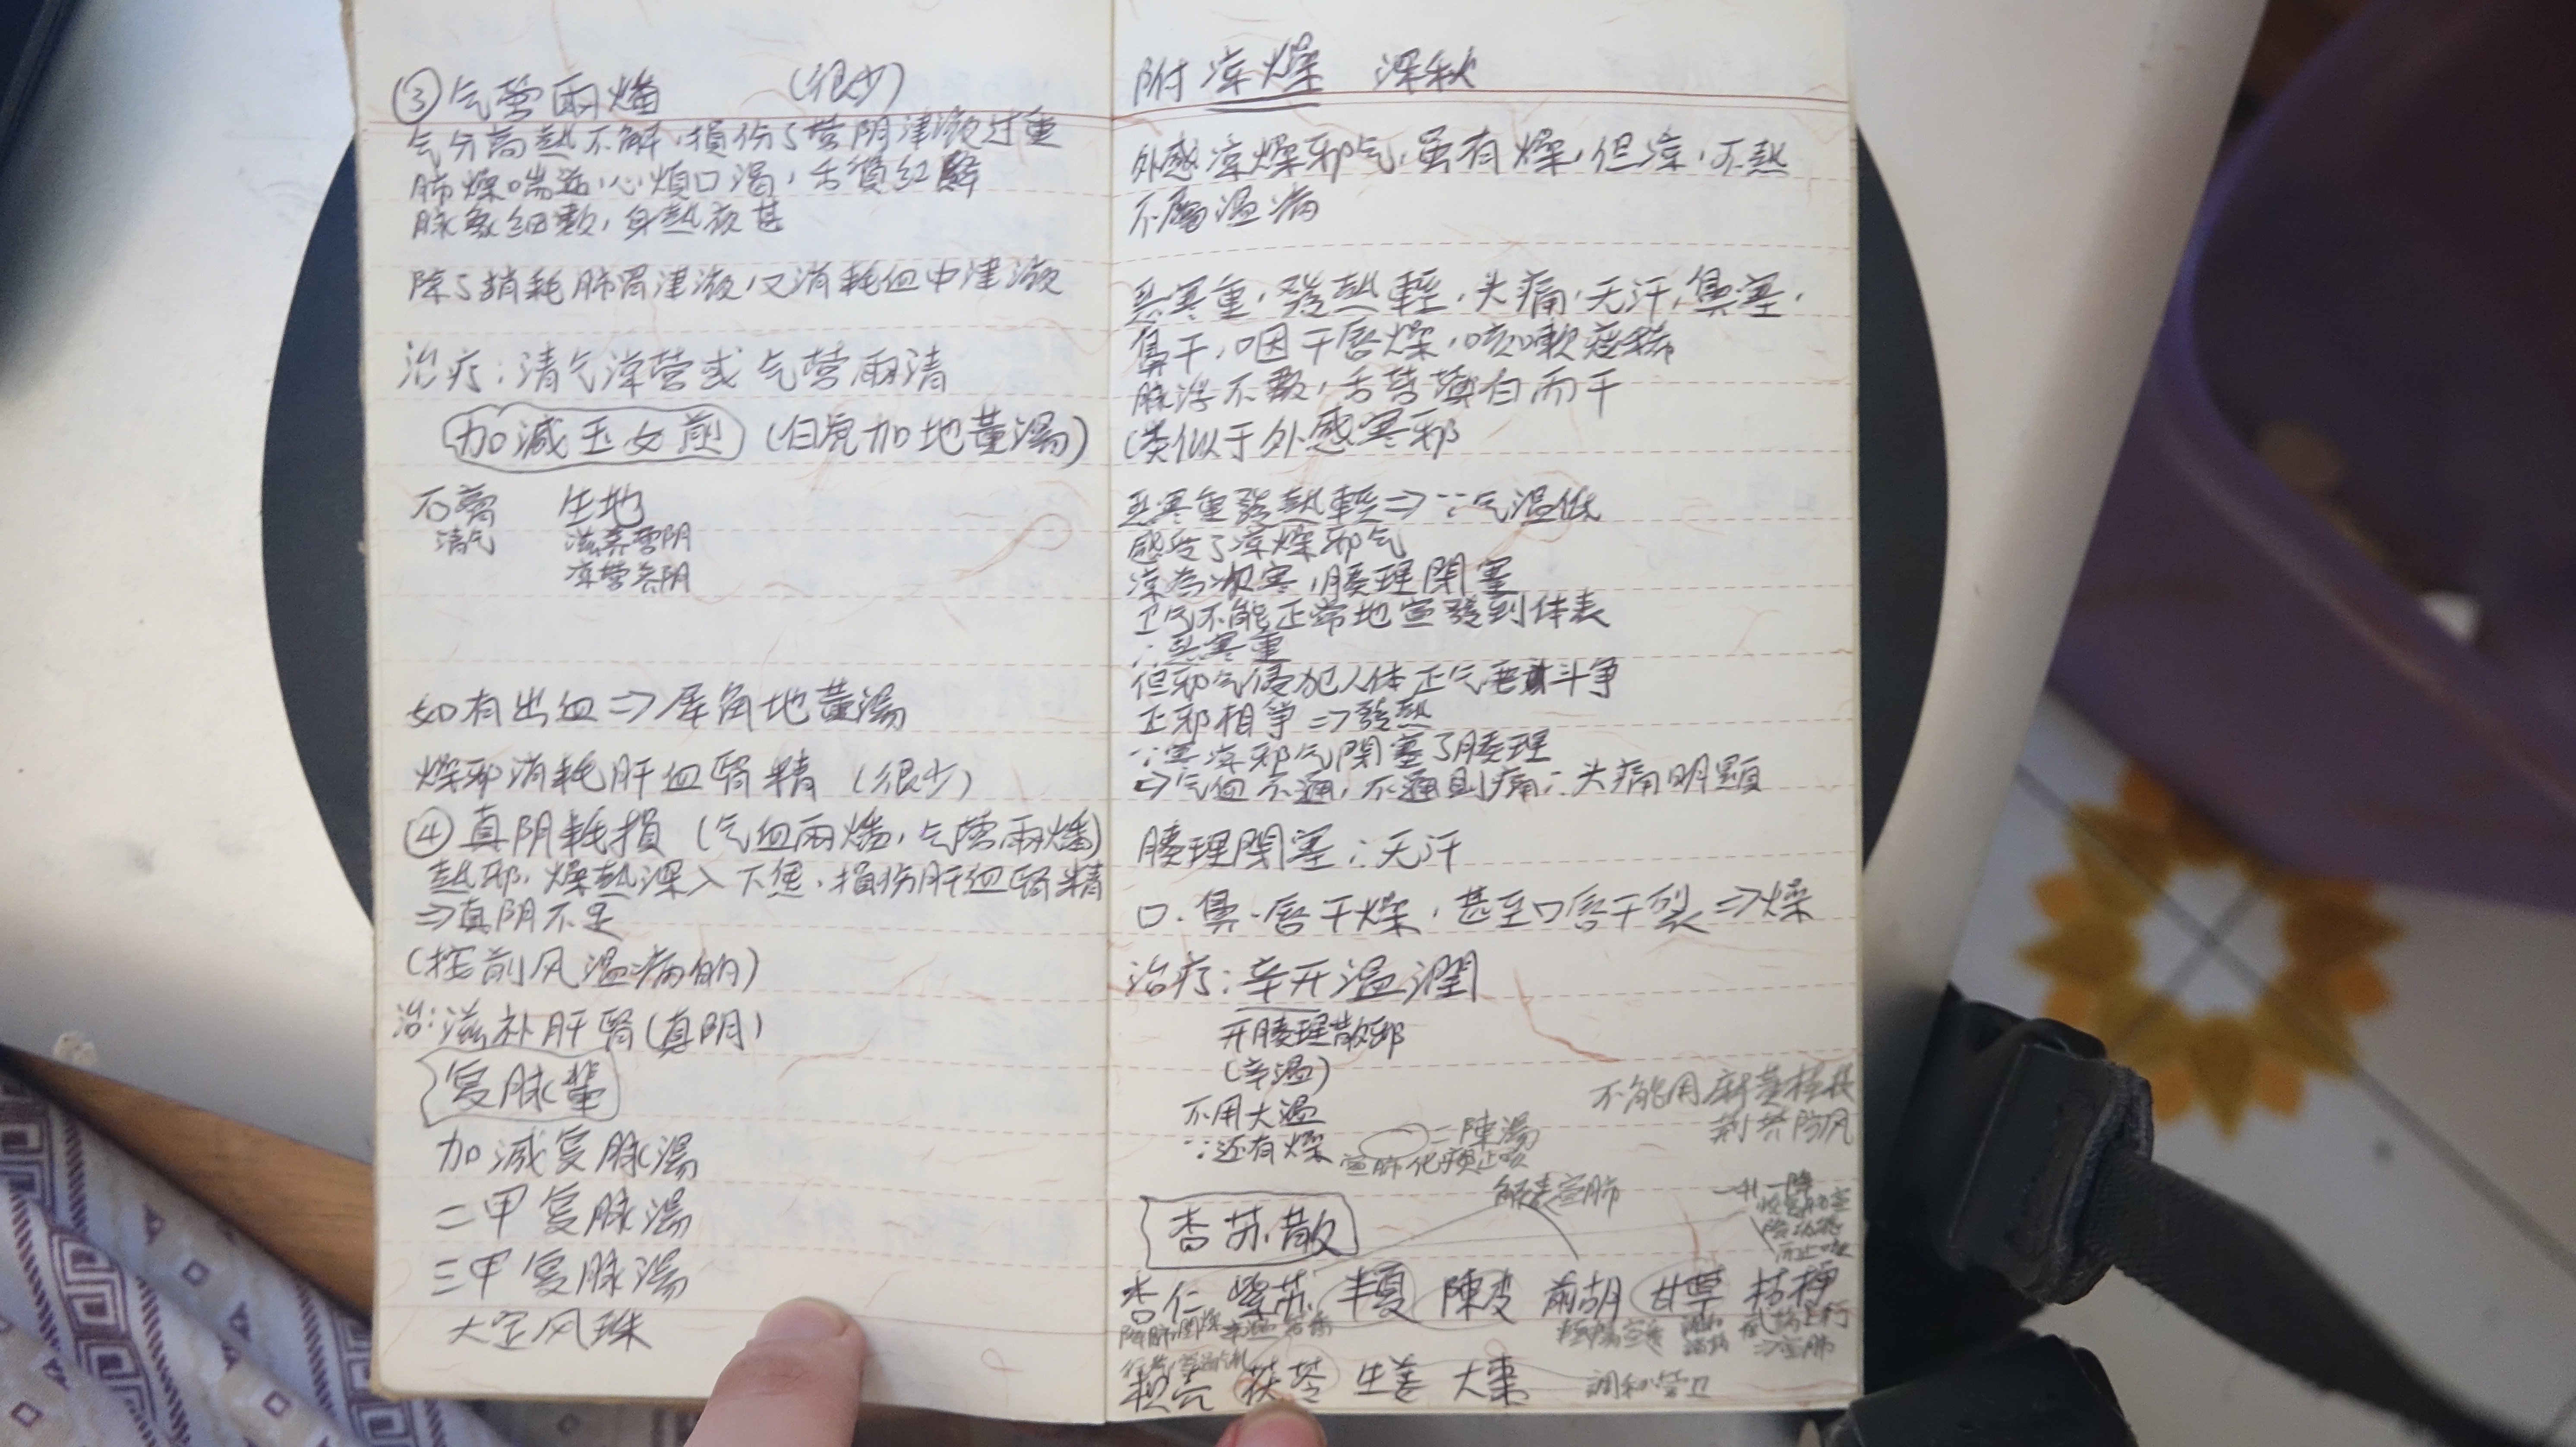 ③气营两燔 (很少)
气分高熱不解,損伤了营阴津液过重
肺燥喘逆,心煩口渴,舌質红絳
脉象細數,身熱夜甚
除了消耗肺胃津液,又消耗血中津液
治疗:清气凉营或气营兩清
加减玉女煎 (白虎加地黃湯)
石膏 生地
清气 滋养营阴
凉营养阴
如有出血⇒犀角地黄湯
燥邪消耗肝血腎精 (很少)
④真阴耗損 (气血兩燔,气营兩燔)
熱邪,燥熱深入下焦,損伤肝血腎精
⇒真阴不足
(按前风温病的)
治:滋补肝腎(真阴)
复脉輩
加减复脉湯
二甲复脉湯
三甲复脉湯
大定风珠
附 凉燥 深秋
外感凉燥邪气,虽有燥,但凉,不熱
不屬温病
恶寒重,發熱輕,头痛,无汗,鼻塞,
鼻干,咽干唇燥,咳嗽痰稀
脉浮不數,舌苔薄白而干
(类似于外感寒邪
恶寒重發熱輕⇒∵气温低
感受了凉燥邪气
凉为次寒,腠理閉塞
卫气不能正常地宣發到体表
∴恶寒重
但邪气侵犯人体正气要斗争
正邪相争⇒發熱
∵寒凉邪气閉塞了腠理
⇒气血不通,不通則痛∴头痛明顯
腠理閉塞∴无汗
口.鼻.唇干燥,甚至口唇干裂⇒燥
治疗:辛开温潤
开腠理散邪
(辛温)
不用大温
∵还有燥
不能用麻黄桂枝
荆芥防风
二陳湯
宣肺化痰止咳
解表宣肺
一升一降
杏苏散
杏仁 紫苏 半夏 陳皮 前胡 甘草 桔梗
⇒宣肺
枳壳 茯苓 生姜 大棗 調和营卫